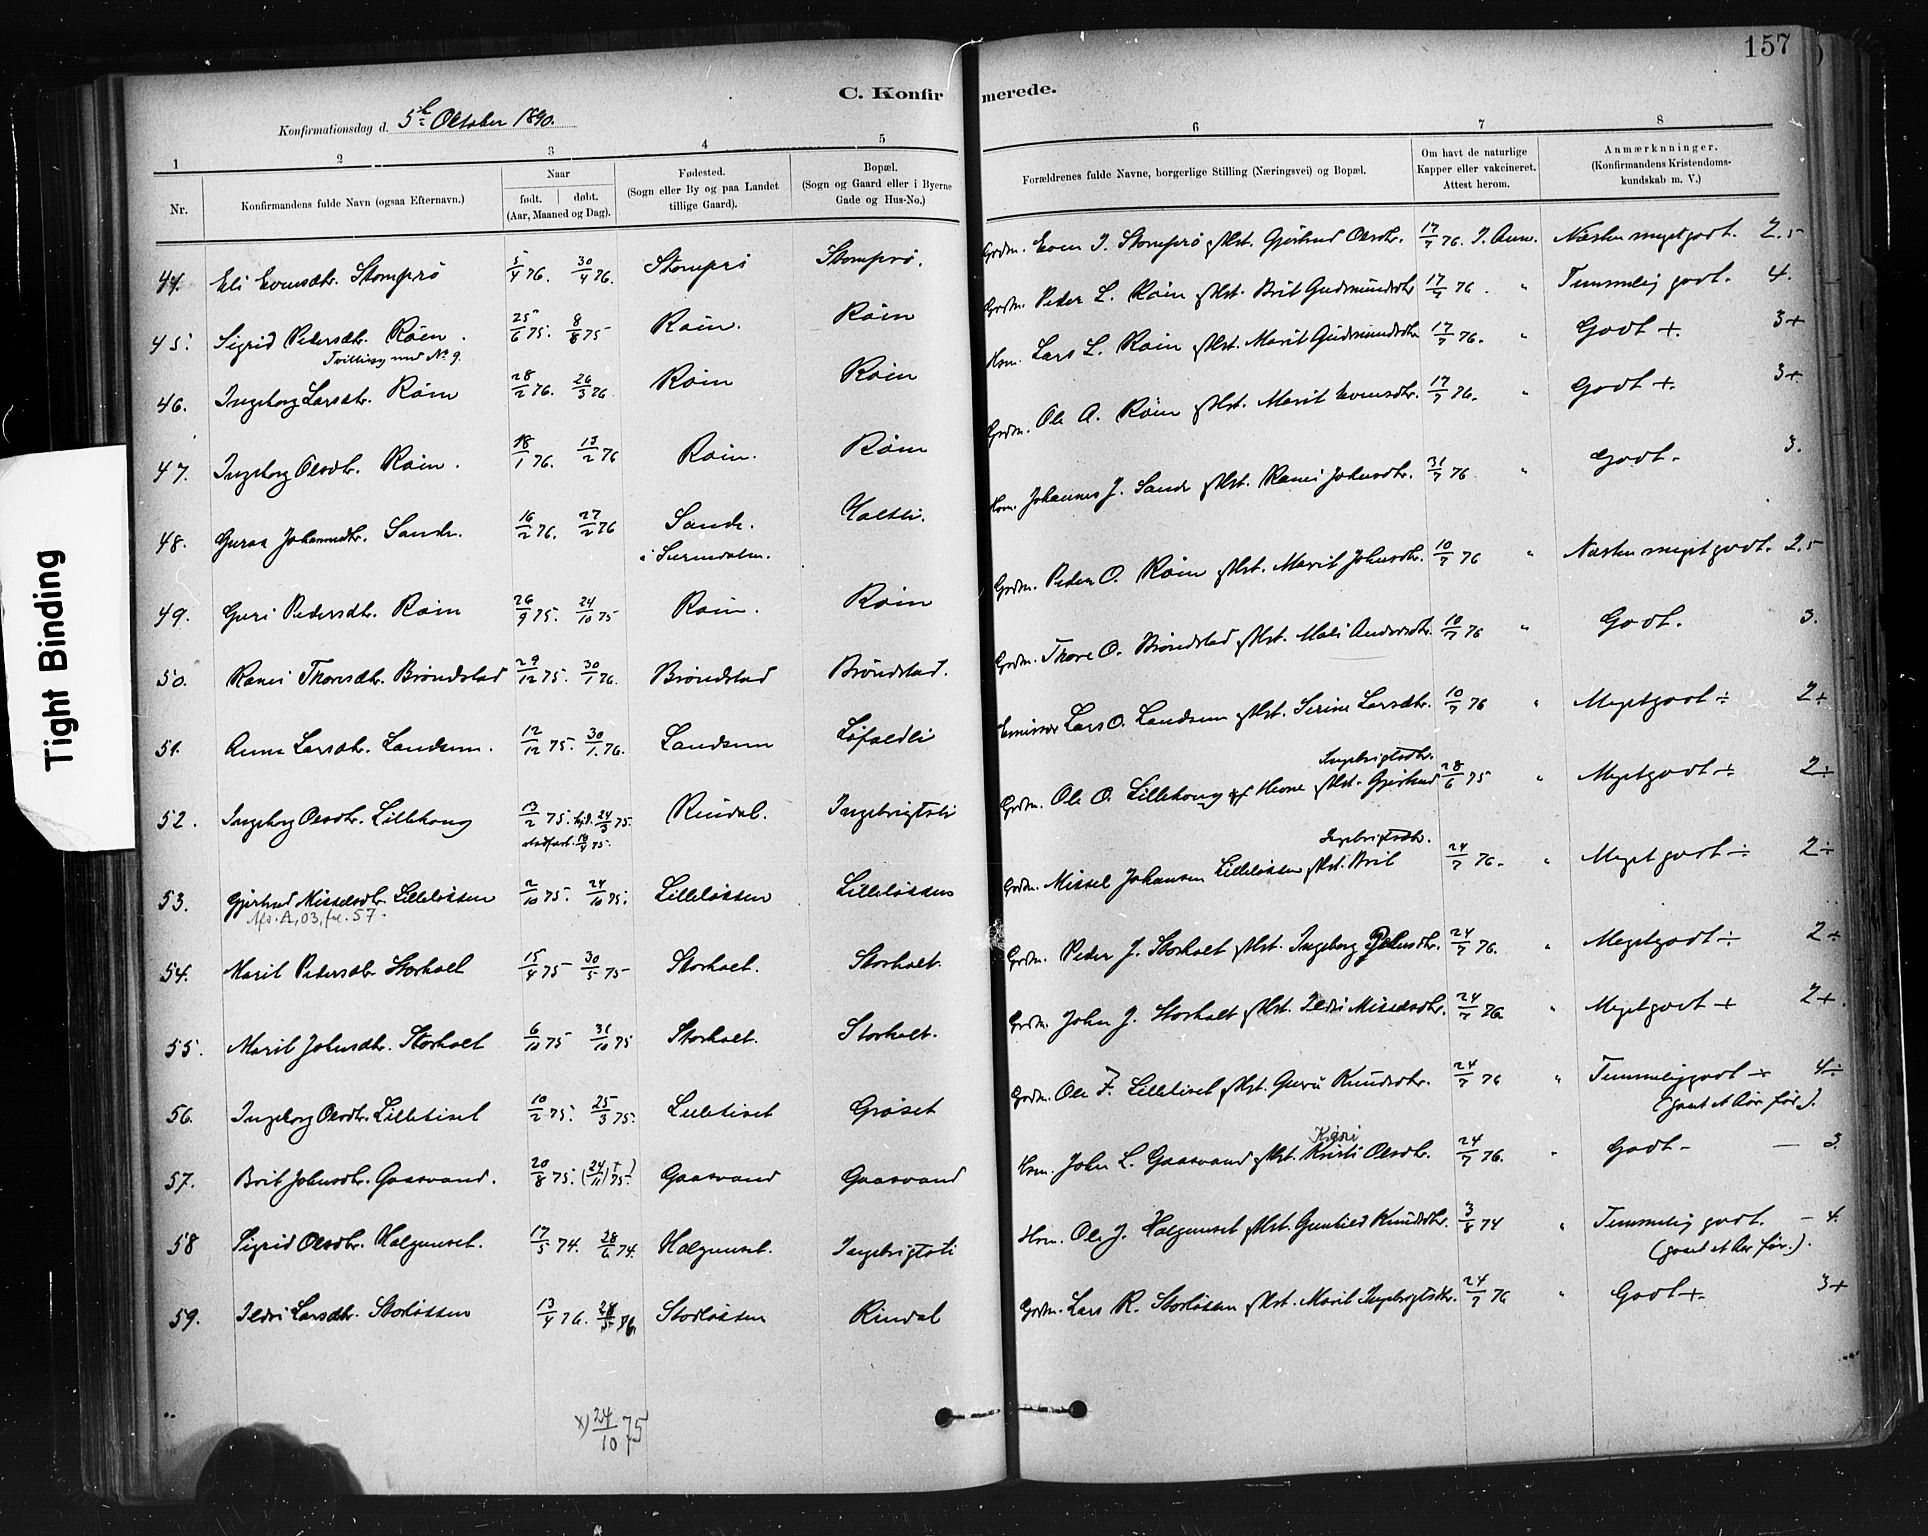 157
C. Konfirmerede.
Konfirmationsdag d. 5te Oktober 1890.
1 2 3 4 5 6 7 8
Nr.
Konfirmandens fulde Navn (ogsaa Efternavn).
Naar
født. døbt.
(Aar, Maaned og Dag).
Fødested.
(Sogn eller By og paa Landet
tillige Gaard).
Bopæl.
(Sogn og Gaard eller i Byerne
Gade og Hus-No.)
Forældrenes fulde Navne, borgerlige Stilling (Næringsvei) og Bopæl.
Om havt de naturlige
Kopper eller vaccineret.
Attest herom.
Anmærkninger.
(Konfirmandens Kristendoms-
kundskab m. V.)
44. Eli Evensdtr. Stomprø 5/4 76. 30/4 76. Stomprø Stomprø. Grdm. Even J. Stomprø Hst. Gjertrud Olsdtr. 17/7 76. Næsten meget godt. 2.5
45. Sigrid Pedersdtr. Røin. 25/6 75. 8/8 75 Røin. Røin Grdm. Peder L. Røin Hst. Brit Gudmundsdtr 17/7 76. " Temmelig godt. 4.
Tvilling med No 9.
46. Ingeborg Larsdtr. Røin 28/2 76. 26/3 76. Røin Røin Hsm. Lars L. Røin Hst. Marit Gudmundsdtr 17/7 76. " Godt +. 3+
47. Ingeborg Olsdtr. Røin. 18/1 76. 13/2 76 Røin. Røin Grdm. Ole A. Røin Hst. Marit Evensdtr. 17/7 76. " Godt +. 3+
48. Guraa Johannesdtr. Sande. 16/2 76. 27/2 76 Sande. Hsm. Johannes J. Sande Hst. Ranei Johnsdtr. 31/7 76 " Godt. 3.
i Surendalen.
49. Guri Pedersdtr. Røin 26/9 75. 24/10 75 Røin. Røin Grdm. Peder O. Røin Hst. Marit Johnsdtr. 10/7 76 " Næsten meget godt. 2.5
50. Ranei Thoresdtr. Brøndstad 29/12 75. 30/1 76. Brøndstad Brøndstad. Grdm. Thore O. Brøndstad Hst. Mali Andersdtr. 10/7 76 " Godt. 3.
51. Anne Larsdtr. Landsem. 12/12 75. 30/1. 76. Landsem Løfaldli Emissær Lars O. Landsem Hst. Serine Larsdtr. 10/7 76 " Meget godt ÷ 2÷
52. Ingeborg Olsdtr. Lillehaug 13/2 75. hjd. 24/3 75. Rindal. Ingebrigtsli Grdm. Ole O. Lillehaug af Hevne Hst. Gjertrud Ingebrigtsdtr. 28/6 75 " Meget godt ÷ 2÷
stadfæst. 75.
53. Gjertrud Misselsdtr. Lilleløssen 2/10 75. 24/10 75. Lilleløssen Lilleløssen Grdm. Missel Johansen Lilleløssen Hst. Brit Ingebrigtsdtr. 24/7 76. " Meget godt ÷ 2÷
Afs. A, 03, fol. 57.
54. Marit Pedersdtr Storholt 15/4 75 30/5 75 Storholt. Storholt. Grdm. Peder J. Storholt Hst. Ingeborg Johnsdtr. 24/7 76. " Meget godt ÷ 2÷
55. Marit Johnsdtr. Storholt 6/10 75 31/10 75 Storholt. Storholt. Grdm. John J. Storholt Hst. Ildri Misselsdtr. 24/7 76. " Meget godt + 2+.
56. Ingeborg Olsdtr. Lilletiset 10/2 75. 25/3 75. Lilletiset Grøset Grdm. Ole F. Lilletiset Hst. Guru Knudsdtr. 24/7 76 " Temmelig godt ÷ 4÷
57. Brit Johnsdtr. Gaasvand. 20/8 75. (24/11 75.) Gaasvand Gaasvand Hsm. John L. Gaasvand Hst. Kristi Olsdtr. 24/7 76. " Godt — 3.
Kari
58 Sigrid Olsdtr. Halgunset. 17/5 74. 28/6 74. Halgunset. Ingebrigtsli Hsm. Ole J. Halgunset Hst. Gunhild Knudsdtr. 3/8 74 " Temmelig godt. — 4.
59. Ildri Larsdtr. Storløssen 13/4 76. Storløssen Rindal Grdm. Lars R. Storløssen Hst. Marit Ingebrigtsdtr. 24/7 76 " Godt +. 3+
x) 24/10 75
Tight Binding